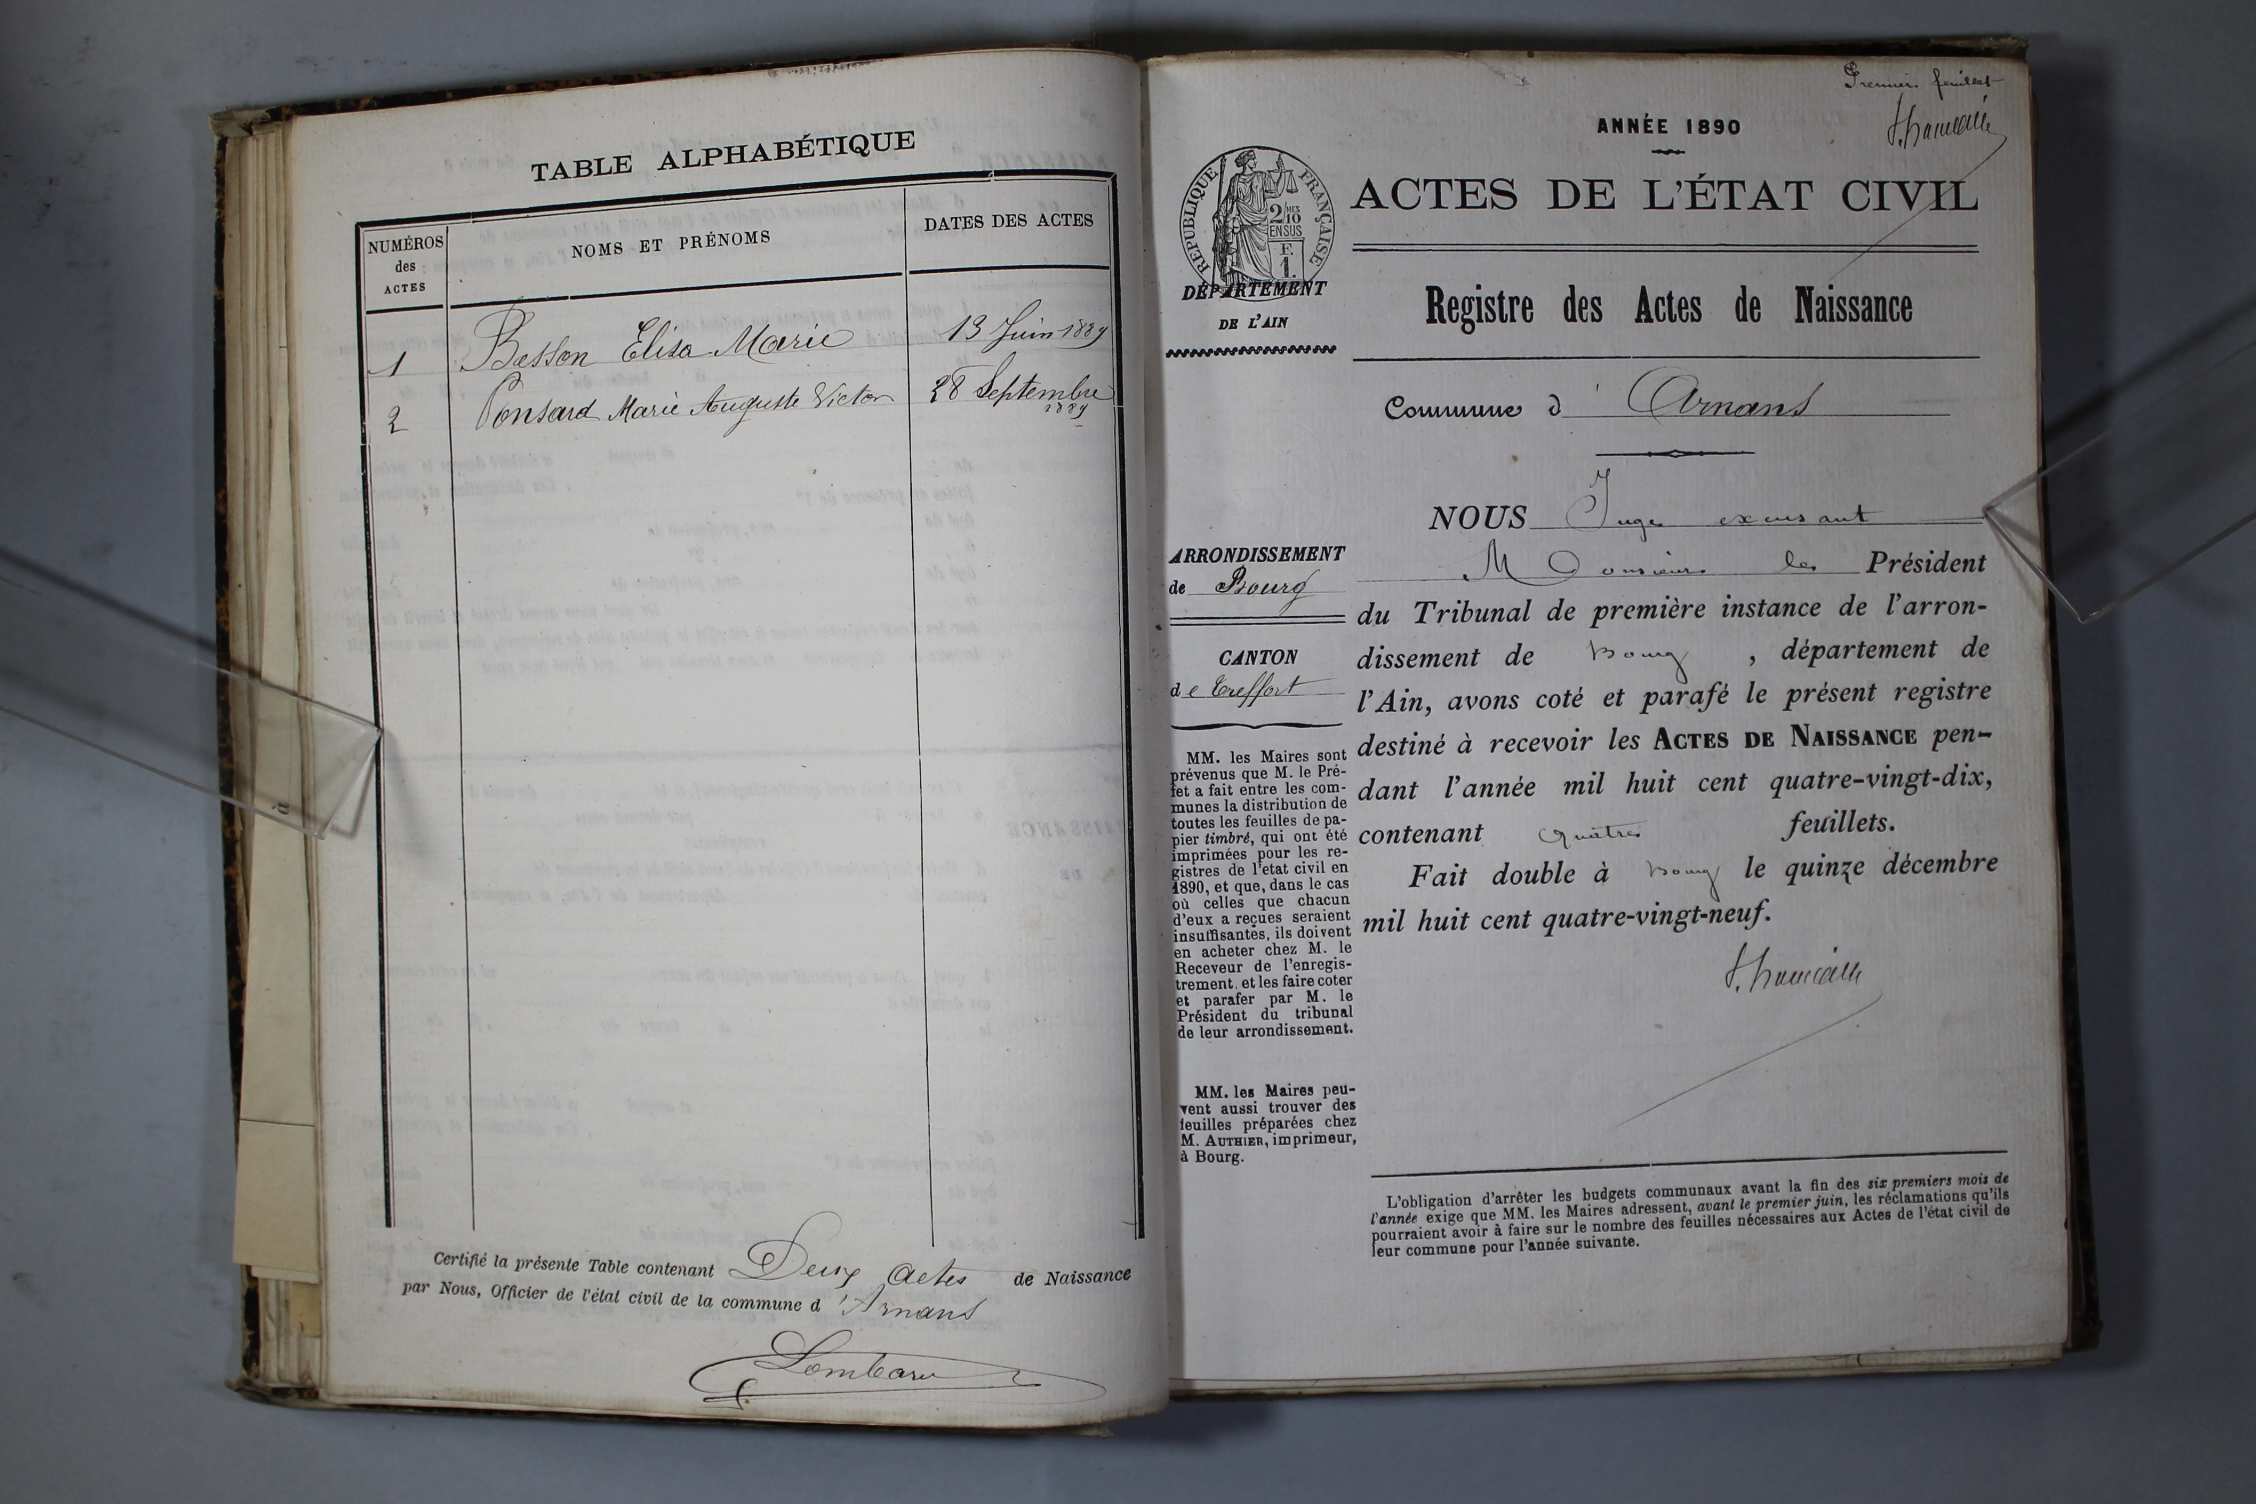 TABLE ALPHABÉTIQUE
NUMÉROS des ACTES
NOMS ET PRÉNOMS
DATES DES ACTES
1 Besson Elisa Marie 13 Juin 1889
2 Ponsard Marie Auguste Victor 28 Septembre 1889
Certifié la présente Table contenant Deux actes de Naissance
par Nous, Officier de l'état civil de la commune d'Arnans
Premier feuillet
ANNÉE 1890
RÉPUBLIQUE FRANÇAISE
2/10 EN SUS
F. 1.
DÉPARTEMENT
DE L'AIN
ACTES DE L'ÉTAT CIVIL
Registre des Actes de Naissance
Commune d'Arnans
ARRONDISSEMENT
de Bourg
CANTON
de Treffort
MM. les Maires sont
prévenus que M. le Pré-
fet a fait entre les com-
munes la distribution de
toutes les feuilles de pa-
pier timbré, qui ont été
imprimées pour les re-
gistres de l'état civil en
1890, et que, dans le cas
où celles que chacun
d'eux a reçues seraient
insuffisantes, ils doivent
en acheter chez M. le
Receveur de l'enregis-
trement, et les faire coter
et parafer par M. le
Président du tribunal
de leur arrondissement.
MM. les Maires peu-
vent aussi trouver des
feuilles préparées chez
M. AUTHIER, imprimeur,
à Bourg.
NOUS Juge
Monsieur le Président
du Tribunal de première instance de l'arron-
dissement de Bourg, département de
l'Ain, avons coté et parafé le présent registre
destiné à recevoir les ACTES DE NAISSANCE pen-
dant l'année mil huit cent quatre-vingt-dix,
contenant quatre feuillets.
Fait double à Bourg le quinze décembre
mil huit cent quatre-vingt-neuf.
L'obligation d'arrêter les budgets communaux avant la fin des six premiers mois de
l'année exige que MM. les Maires adressent, avant le premier juin, les réclamations qu'ils
pourraient avoir à faire sur le nombre des feuilles nécessaires aux Actes de l'état civil de
leur commune pour l'année suivante.